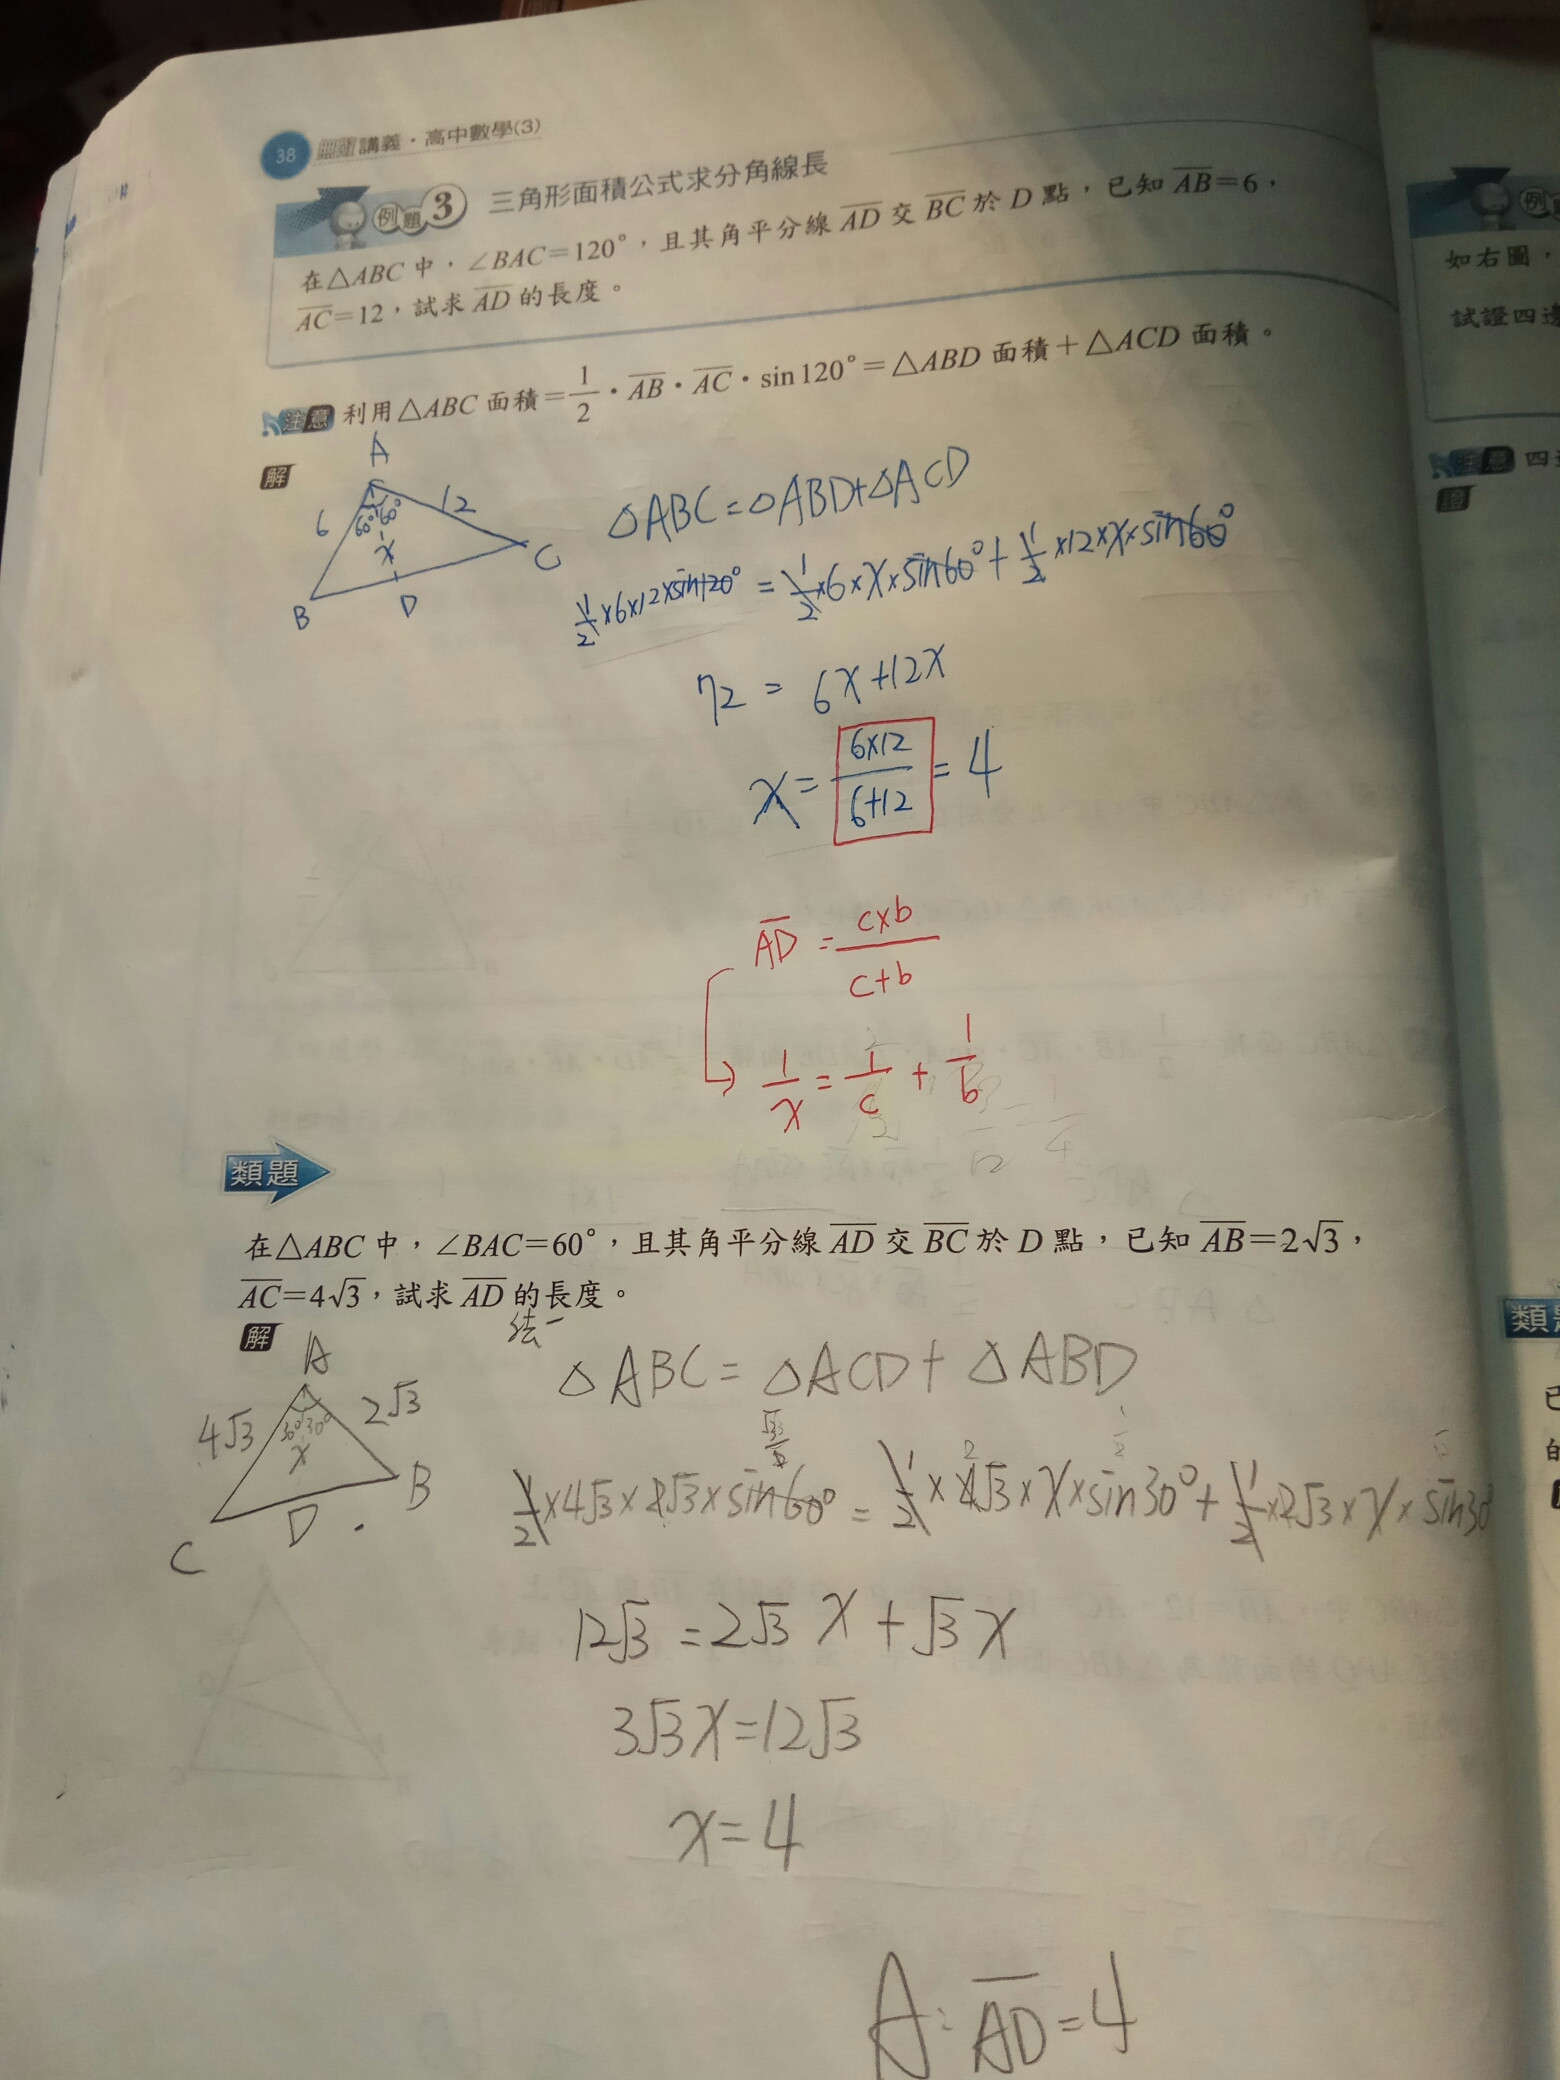 38 講義・高中數學(3)
例題3 三角形面積公式求分角線長
在△ABC中，∠BAC=120°，且其角平分線 \overline{AD} 交 \overline{BC} 於 D 點，已知 \overline{AB}=6，
\overline{AC}=12，試求 \overline{AD} 的長度。
注意 利用△ABC 面積=\frac{1}{2}・\overline{AB}・\overline{AC}・sin 120°=△ABD 面積+△ACD 面積。
解
A
6 60° 60° 12
x
B D C
△ABC=△ABD+△ACD
\frac{1}{2}×6×12×sin120° = \frac{1}{2}×6×x×sin60°+\frac{1}{2}×12×x×sin60°
72 = 6x+12x
x=\frac{6×12}{6+12}=4
\overline{AD}=\frac{c×b}{c+b}
\frac{1}{x}=\frac{1}{c}+\frac{1}{b}
類題
在△ABC中，∠BAC=60°，且其角平分線 \overline{AD} 交 \overline{BC} 於 D 點，已知 \overline{AB}=2√3，
\overline{AC}=4√3，試求 \overline{AD} 的長度。
解
法一
A
4√3 30° 30° 2√3
x
C D B
△ABC=△ACD+△ABD
\frac{1}{2}×4√3×2√3×sin60° = \frac{1}{2}×4√3×x×sin30°+\frac{1}{2}×2√3×x×sin30
12√3 = 2√3 x+√3 x
3√3x=12√3
x=4
A: \overline{AD}=4
例
如右圖，
試證四邊
注意 四
證
類題
已
的